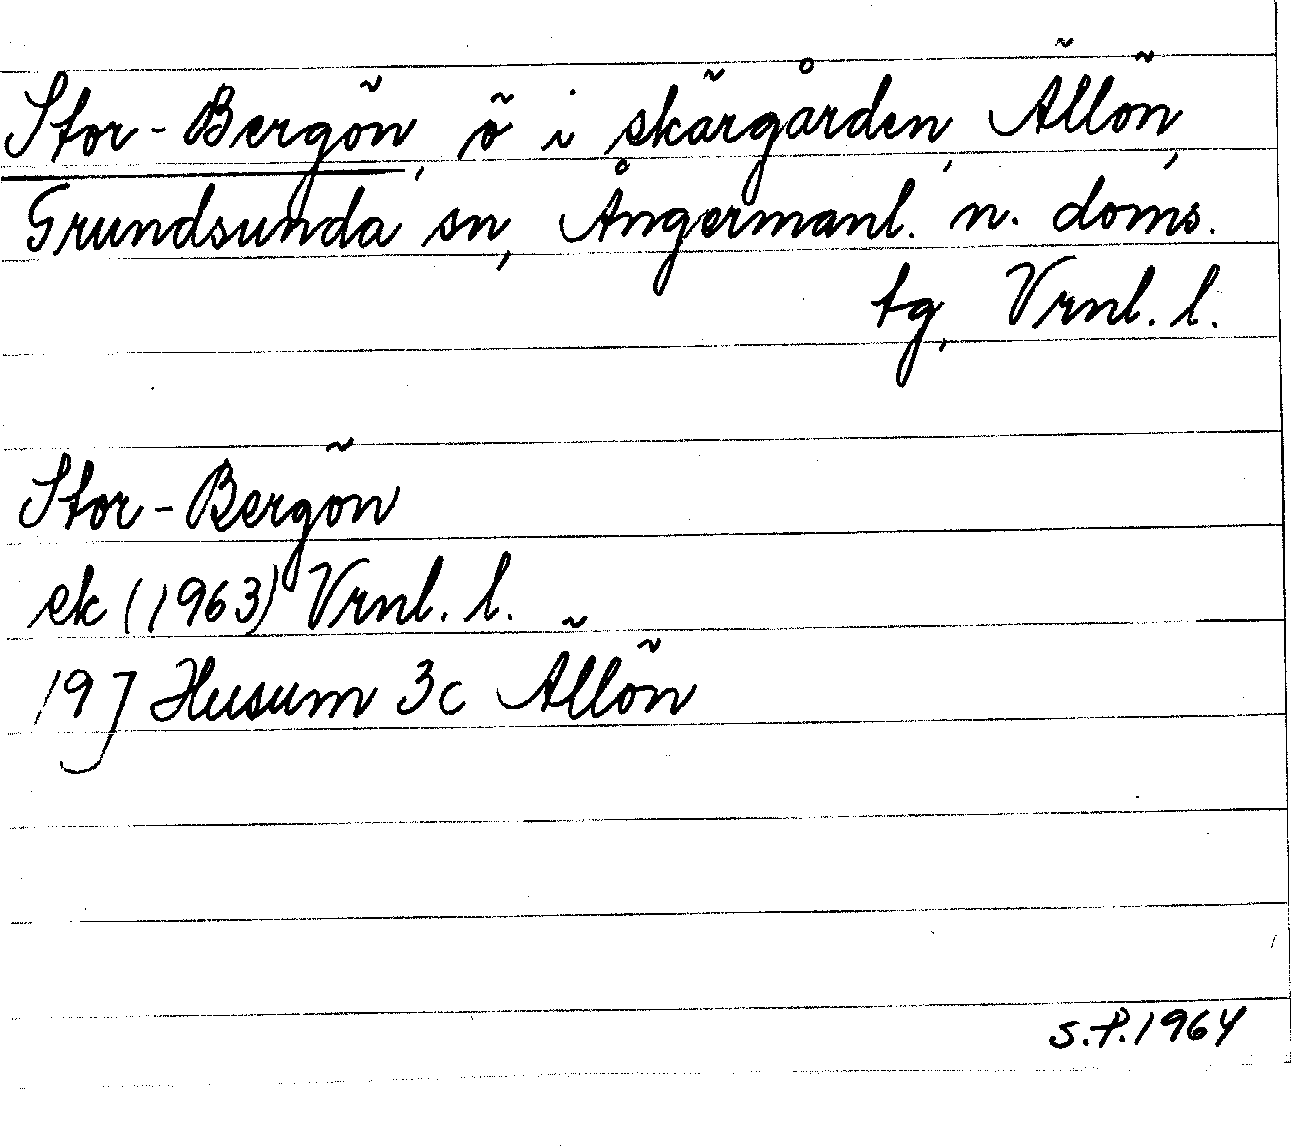 Stor-Bergön, ö i skärgården, Ällön,
Grundsunda sn, Ångermanl. n. doms.
tg, Vrnl. l.
Stor-Bergön
ek (1963) Vrnl. l.
19J Husum 3c Ällön
S.P. 1964